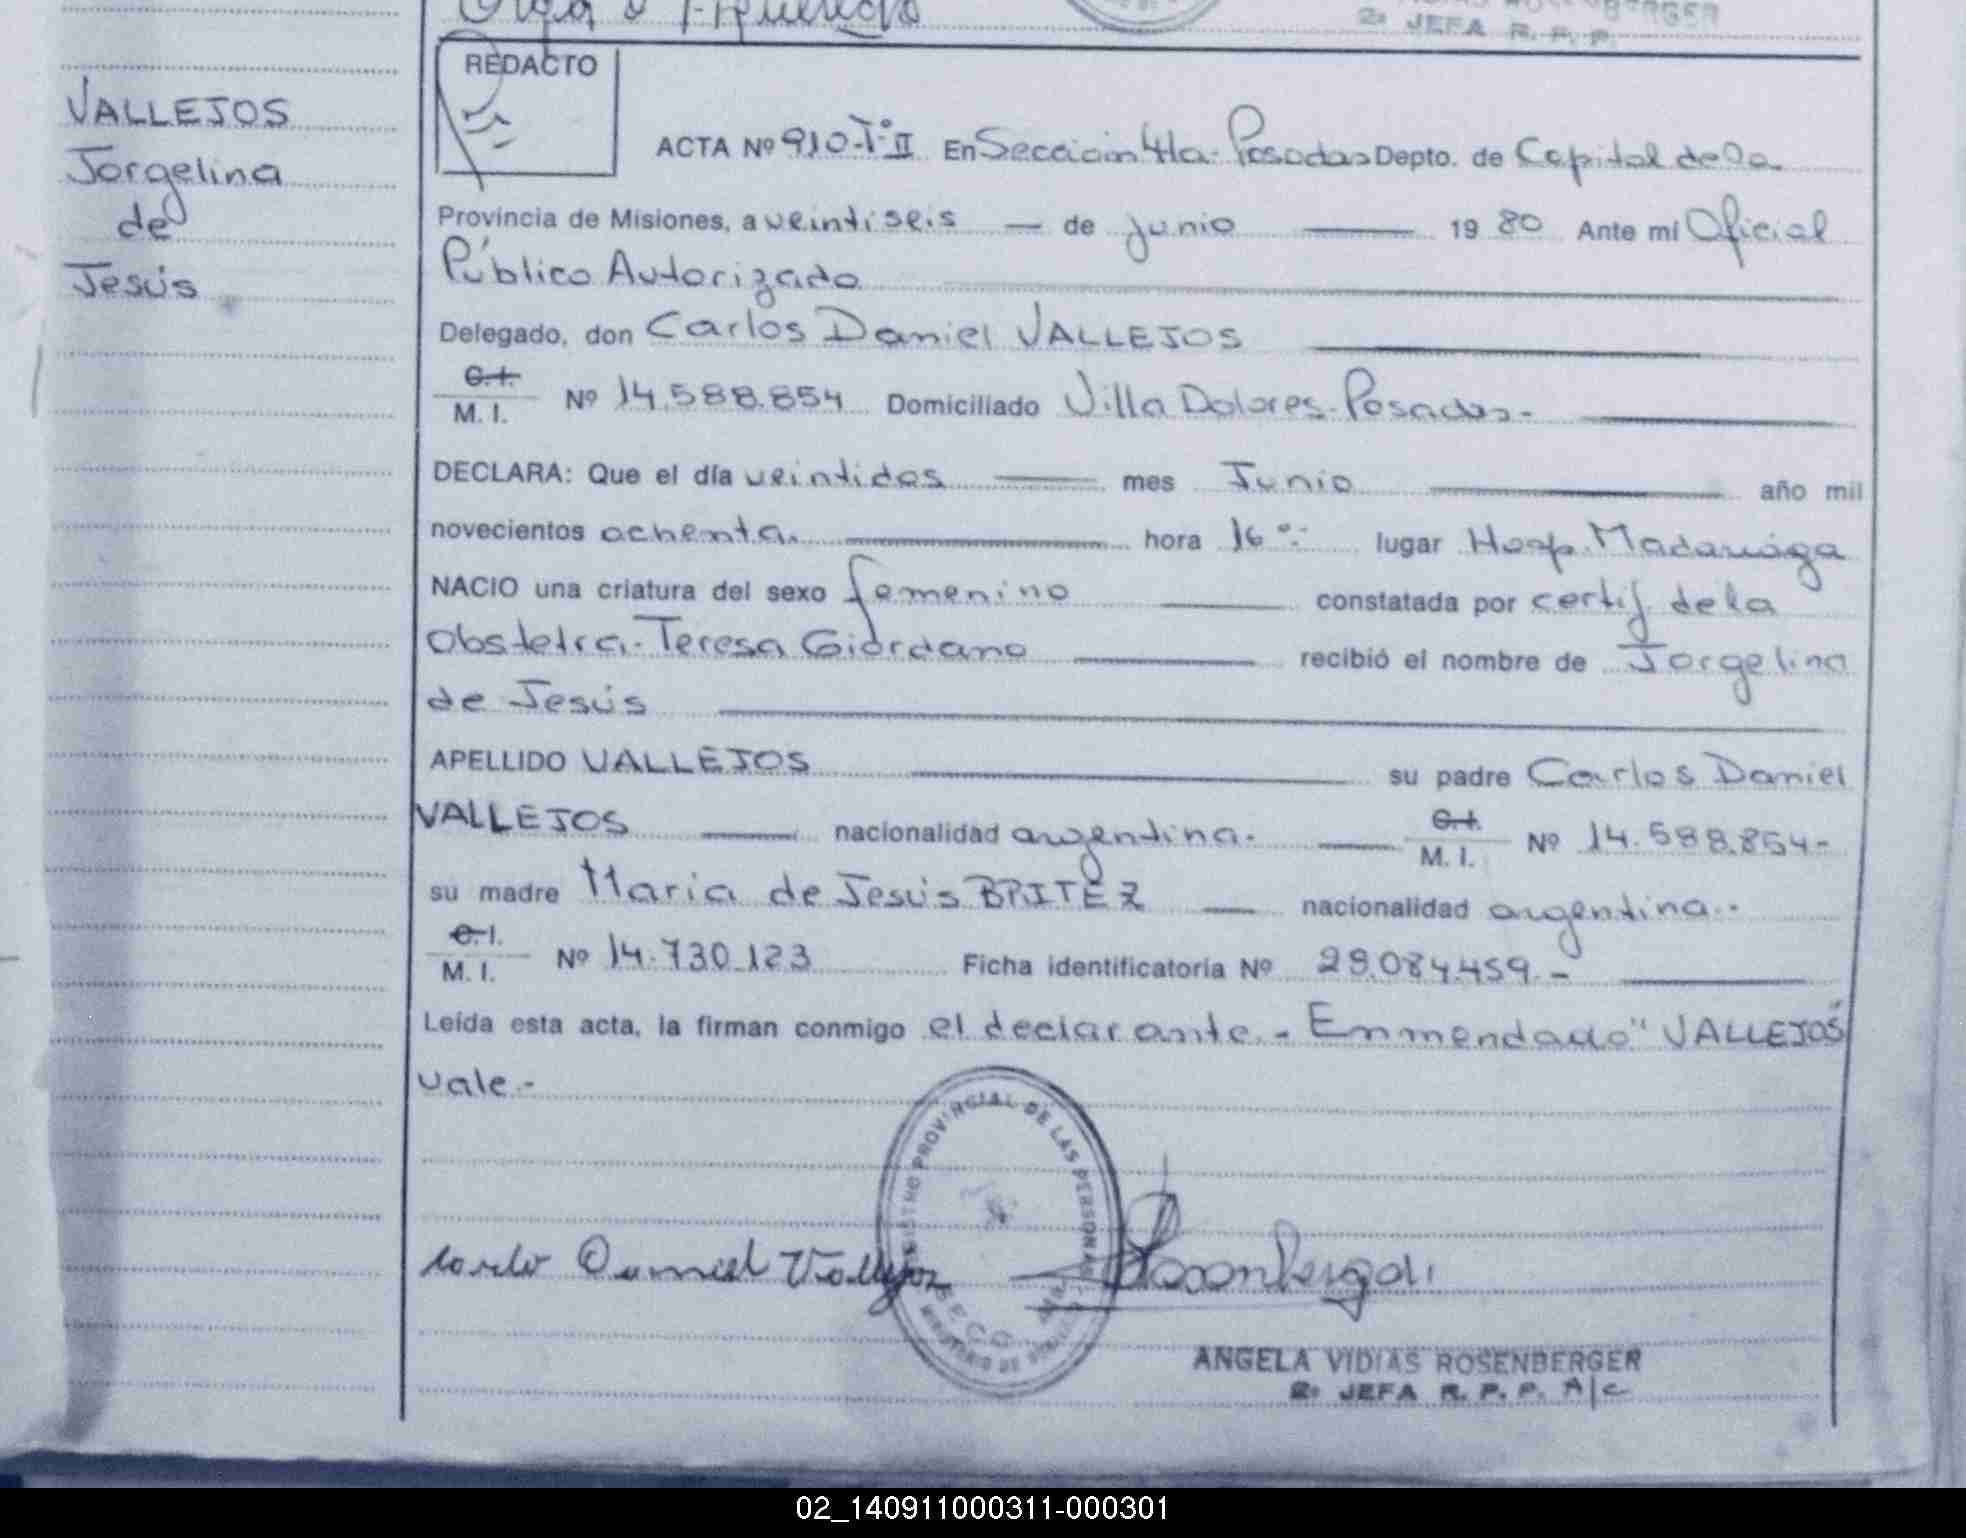 Olga
2º JEFA R. P. P.
REDACTO
VALLEJOS
Jorgelina
de
Jesús
ACTA Nº 910-Tº II En Sección 4ta. Posadas Depto. de Capital de la
Provincia de Misiones, a veintiseis — de junio — 19 80 Ante mi Oficial
Público Autorizado
Delegado, don Carlos Daniel VALLEJOS
C.I. / M. I. Nº 14.588.854 Domiciliado Villa Dolores-Posadas-
DECLARA: Que el día veintidos — mes Junio — año mil
novecientos ochenta. — hora 16 lugar Hosp. Madariaga
NACIO una criatura del sexo femenino — constatada por certif. de la
Obstetra-Teresa Giordano — recibió el nombre de Jorgelina
de Jesús —
APELLIDO VALLEJOS — su padre Carlos Daniel
VALLEJOS — nacionalidad argentina. — C.I. / M. I. Nº 14.588.854-
su madre Maria de Jesús BRITEZ — nacionalidad argentina.-
C.I. / M. I. Nº 14.730.123 Ficha identificatoria Nº 29.084.459.- —
Leída esta acta, la firman conmigo el declarante.- Enmendado "VALLEJOS"
vale.-
REGISTRO PROVINCIAL DE LAS PERSONAS
MINISTERIO DE
Carlos Daniel Vallejos
ANGELA VIDIAS ROSENBERGER
2º JEFA R. P. P. A/c
02_140911000311-000301